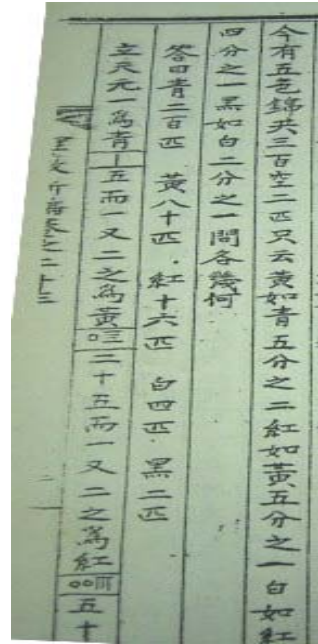 今有五色錦共三百空二匹只云黃如青五分之二紅如黃五分之一白如紅
四分之一黑如白二分之一問各幾何
答曰青二百匹　黃八十匹．紅十六匹　白四匹．黑二匹
立天元一為青｜五而一又二之為黃〇二十五而一又二之為紅〇〇五十
之二十三